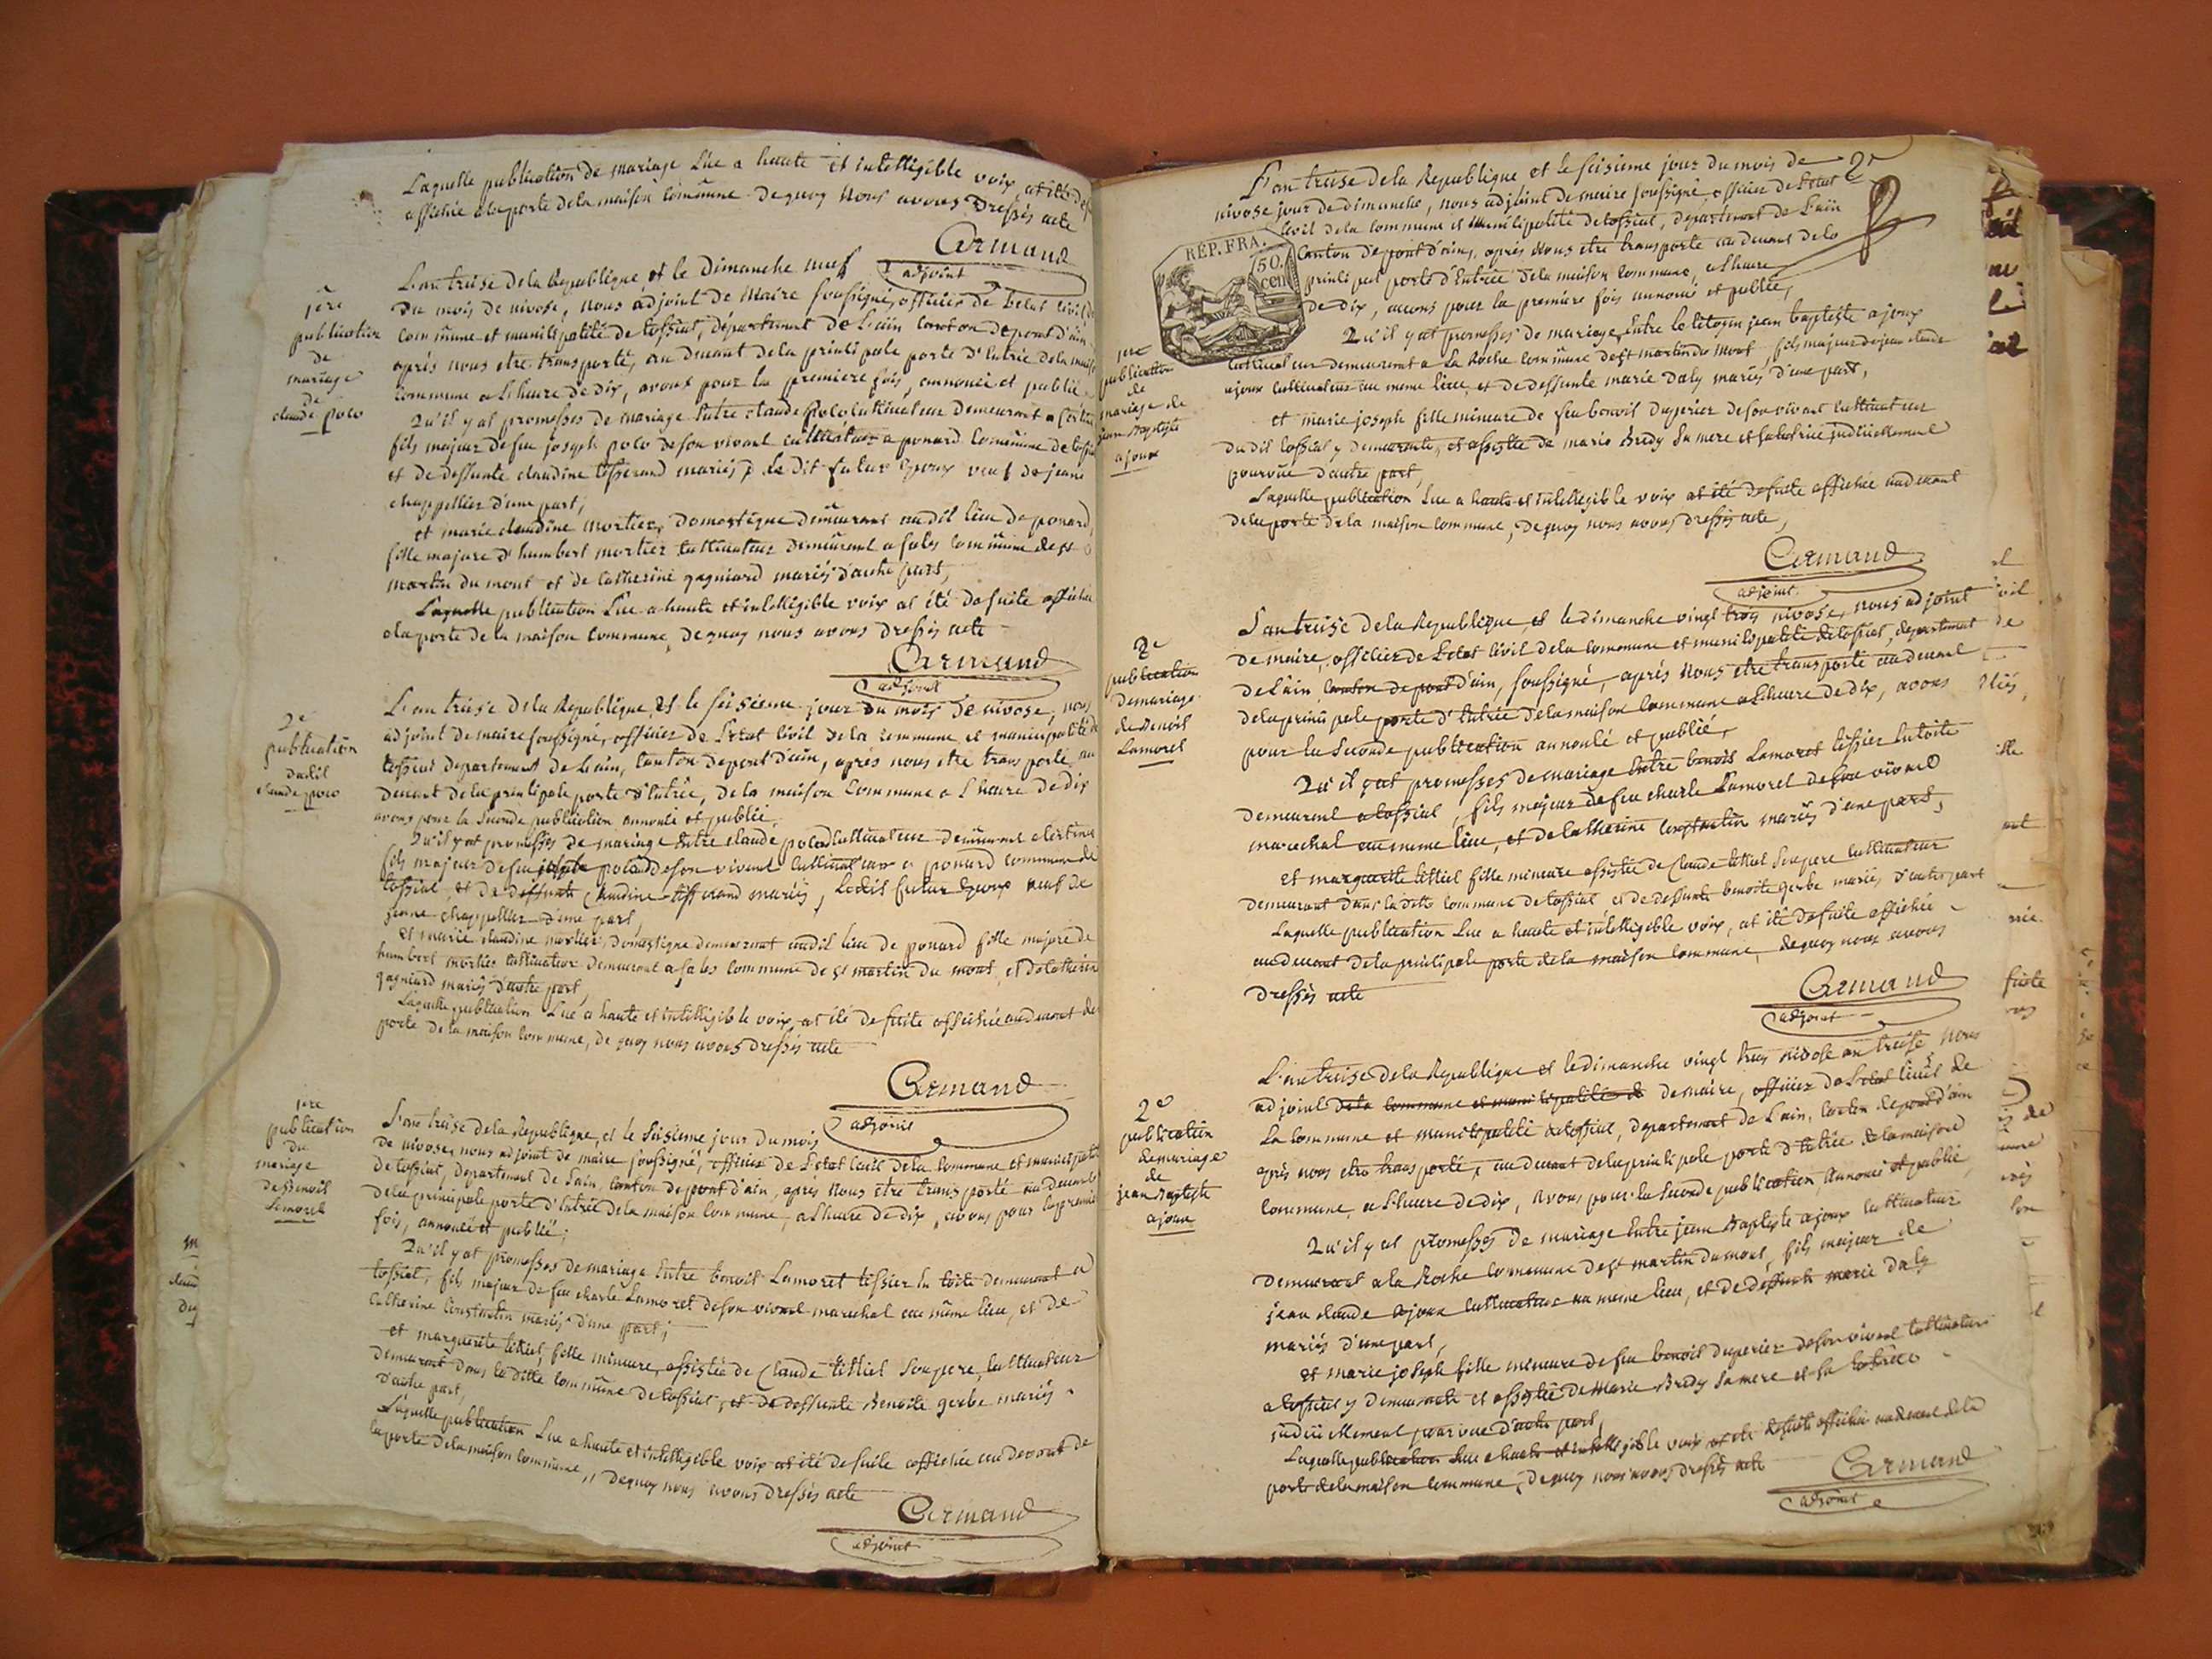 Laquelle publication de mariage Lue a haute et intelligible voix at été de
affichée alaporte dela maison commune dequoy nous avons Dressés acte
Armand
adjoint
1ere
publication
de
mariage
de
claude polo
L'an treise dela Republique et le Dimanche neuf
Du mois de nivose, nous adjoint de Maire soussigné, officier de l'etat civil de
commune et municipalité de tossiat, département de L'ain canton depont d'ain
après nous etre transporté, au devant dela principale porte d'Entrée dela mais
commune a Lheure de dix, avons pour la premiere fois, annoncé et publié
Qu'il y at promesses de mariage Entre claude polo cultivateur demeurant a
fils majeur defeu joseph polo deson vivant cultivateur a ponard commune de tossiat
et de deffunte claudine tisserand mariés, Le dit futur Epoux veuf de jeane
chappellier d'une part,
et marie claudine mortier, Domestique demeurant audit lieu de ponard,
fille majure d'humbert mortier cultivateur demeurant a sales commune dest
martin du mont et de Catherine gagniard mariés d'autre part,
Laquelle publication Lue a haute et intelligible voix at été desuite affichée
alaporte dela maison commune, dequoy nous avons dressés acte
Armand
adjoint
2e
publication
dudit
claude polo
L'an treise dela Republique, et le seisieme jour du mois de nivose, nous
adjoint de maire soussigné, officier de L'etat Civil de la commune et municipalité de
tossiat departement de L'ain, canton depont d'ain, après nous etre transporté, au
devant dela principale porte d'Entrée, dela maison Commune a L'heure de dix
avons pour la seconde publication annoncé et publié,
Qu'il y at promesses de mariage Entre claude polo cultivateur demeurant a
fils majeur defeu joseph polo deson vivant cultivateur a ponard commune de
tossiat, et de deffunte Claudine tisserand mariés, Ledit futur Epoux veuf de
jeanne chappellier d'une part,
et marie claudine mortier, domestique demeurant audit lieu de ponard fille majore de
humbert mortier cultivateur demeurant a sales commune de st martin du mont, et de catherine
gagniard mariés d'autre part,
Laquelle publication Lue a haute et intelligible voix, at été desuite affichée audevant de
porte dela maison commune, de quoy nous avons dressés acte
Armand
adjoint
1ere
publication
du
mariage
de Benoit
Lamorel
L'an treise dela Republique, et le seisieme jour du mois
de nivose, nous adjoint de maire soussigné, officier de L'etat Civil dela commune et municipalité
de tossiat, Departement de Lain, Canton depont d'ain, après Nous etre transporté au devant
dela principale porte d'Entrée dela maison Commune, a Lheure de dix, avons pour lapremiere
fois, annoncé et publié;
Qu'il y at promesses de mariage Entre benoit Lamoret tissier En toile demeurant a
tossiat, fils majeur de feu charle Lamoret deson vivant marechal au même lieu, et de
Catherine Constantin mariés d'une part;
et marguerite , fille mineure, assistée de Claude Son pere, cultivateur
demeurant dans ladite commune de tossiat, et de deffunte Benoite gerbe mariés
d'autre part,
Laquelle publication Lue a haute et intelligible voix at été desuite affichée audevant de
laporte dela maison commune,, dequoy nous avons dressés acte
Armand
adjoint
L'an treise dela Republique et le seisieme jour du mois de
nivose jour de dimanche, nous adjoint de maire soussigné, officier de L'etat
Civil de la commune et municipalité detossiat, departement de L'ain
Canton depont d'ain, après Nous etre transporté au devant dela
principal porte d'Entrée dela maison commune, a Lheure
de dix, avons pour la première fois annoncé et publié,
2e
REP. FRA.
50
cen
1ere
publication
de
mariage de
jean Baptiste
ajoux
Qu'il y at promesses de mariage Entre le citoyen jean baptiste ajoux
cultivateur demeurant a La Roche commune de st martin du Mont, fils majeur de jean claude
ajoux cultivateur au meme lieu, et de deffunte marie Daly mariés d'une part,
et marie joseph fille mineure de feu benoit duperier deson vivant cultivateur
dudit tossiat y demeurante, et assistée de marie Bredy sa mere et satutrice judiciellement
pourvüe d'autre part,
Laquelle publication Lue a haute et intelligible voix at été desuite affichée audevant
delaporte dela maison commune, dequoy nous avons dressés acte,
Armand
adjoint
2e
publication
demariage
de Benoit
Lamoret
L'an treise dela Republique, et ledimanche vingt trois nivose, nous adjoint
de maire, officier de L'etat Civil dela commune et municipalité de tossiat, departement
de L'ain canton depont d'ain, soussigné, après Nous etre transporté audevant
delaprincipale porte d'Entrée dela maison commune a L'heure de dix, avons
pour la Seconde publication annoncé et publié,
Qu'il y at promesses de mariage Entre benoit Lamoret tissier En toile
demeurant a tossiat, fils majeur defeu charle Lamoret deson vivant
marechal au meme lieu, et de Catherine Constantin mariés d'une part,
et marguerite fille mineure assistée de Claude Son pere cultivateur
demeurant dans la ditte commune de tossiat et de deffunte benoite gerbe mariés d'autre part
Laquelle publication Lue a haute et intelligible voix, at été desuite affichée
audevant dela principale porte dela maison commune, dequoy nous avons
dressés acte
Armand
adjoint
2e
publication
demariage
de
jean Baptiste
ajoux
L'an treise dela Republique et ledimanche vingt trois nivose an treise nous
adjoint dela commune et municipalité de de maire, officier de L'etat Civil de
La commune et municipalité de tossiat, departement de Lain, canton depont d'ain
après nous etre transporté, au devant delaprincipale porte d'Entrée dela maison
commune, a L'heure de dix, avons pour la seconde publication, Annoncé et publié,
Qu'il y at promesses de mariage Entre jean Baptiste ajoux cultivateur
demeurant a la Roche commune de st martin du mont, fils majeur de
jean claude ajoux cultivateur au meme lieu, et de deffunte marie daly
mariés d'une part,
et marie joseph fille mineure de feu benoit duperier deson vivant cultivateur
a tossiat y demeurante et assistée de Marie Bredy sa mere et sa tutrice
judiciellement pourvue d'autre part,
Laquelle publication Lue a haute et intelligible voix at été desuite affichée audevant dela
porte dela maison commune, dequoy nous avons dressés acte
Armand
adjoint